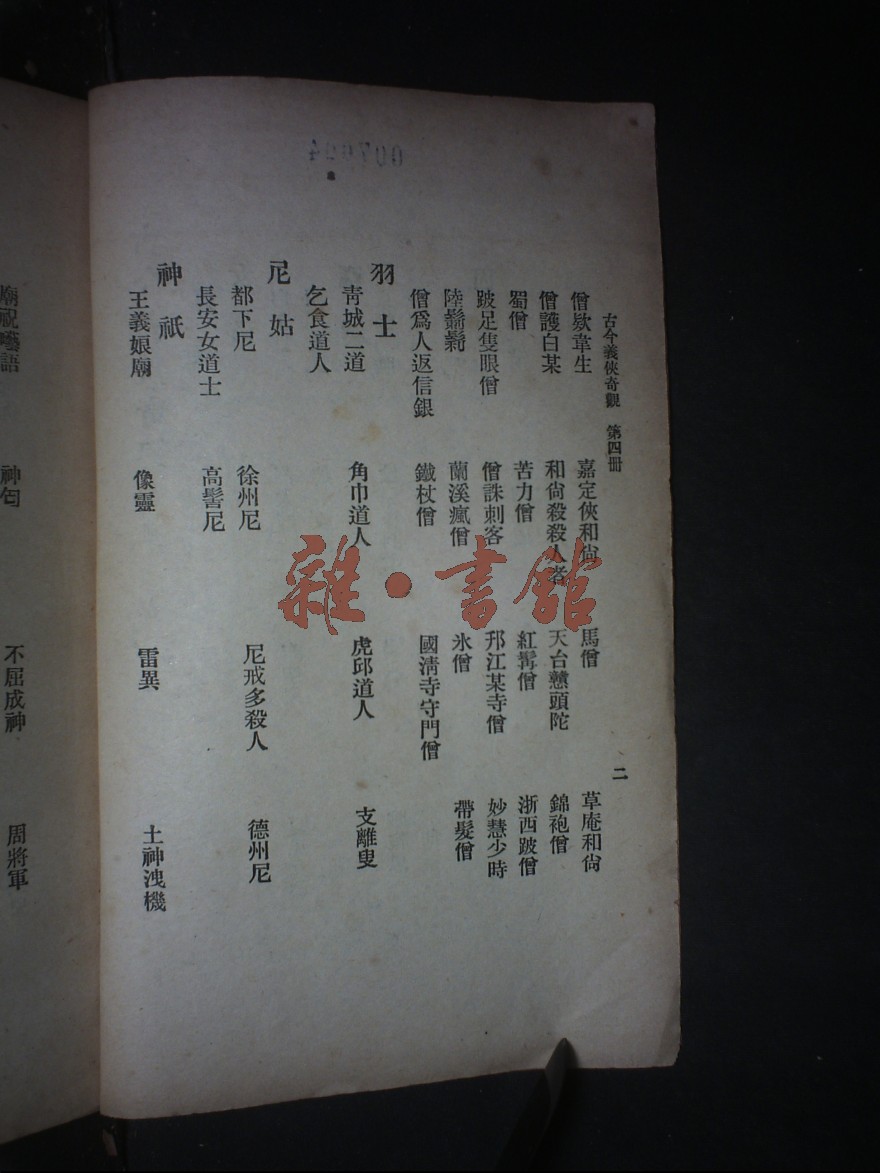 古今義俠奇觀　第四冊　二
僧欵韋生　嘉定俠和尙　馬僧　草庵和尙
僧護白某　和尙殺殺人者　天台戇頭陀　錦袍僧
蜀僧　苦力僧　紅髯僧　浙西跛僧
跛足隻眼僧　僧誅刺客　邗江某寺僧　妙慧少時
陸　蘭溪瘋僧　氷僧　帶髮僧
僧爲人返信銀　鐵杖僧　國淸寺守門僧
羽士
靑城二道　角巾道人　虎邱道人　支離叟
乞食道人
尼姑
都下尼　徐州尼　尼戒多殺人　德州尼
長安女道士　高髻尼
神祇
王義娘廟　像靈　雷異　土神洩機
廟祝囈語　神匄　不屈成神　周將軍
雜·書館